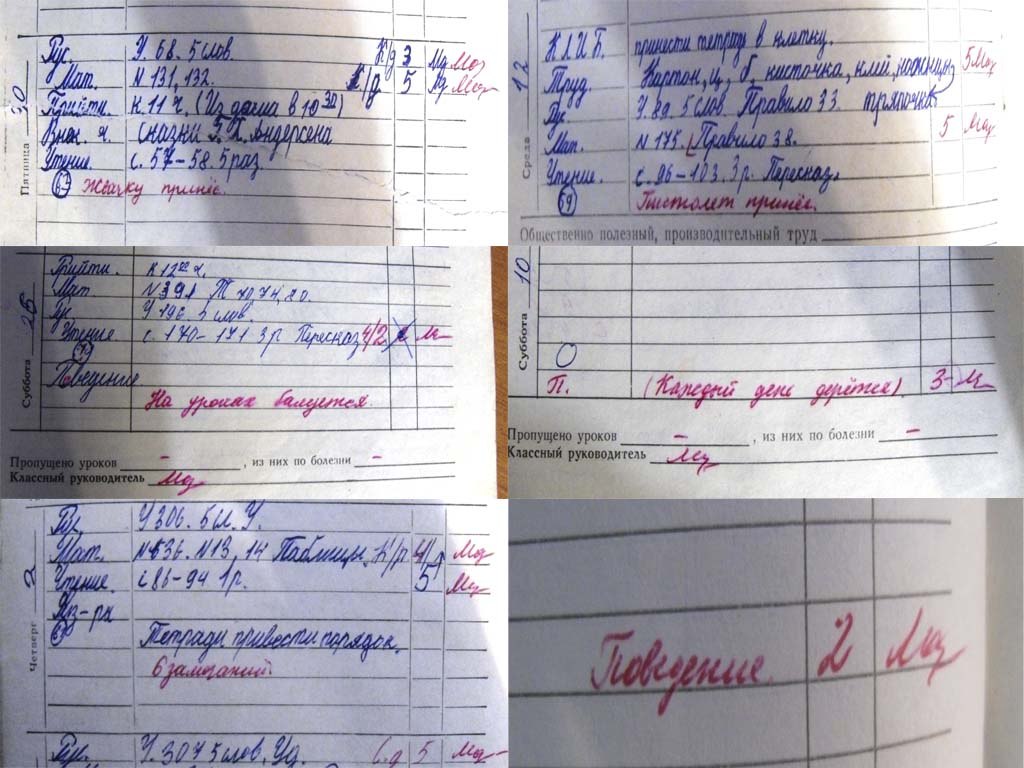 Пятница 30
Рус. У. 68. 5 слов. К/д 3
Мат. N 131, 132. К/р 5
Прийти. К 11 ч. (Из дома в 10 30)
Внек. ч. Сказки Г. Х. Андерсена
Чтение. с. 57-58. 5 раз.
67 Жвачку принёс.
Среда 12
К Л И Б. принести тетрадь в клетку.
Труд. Картон, ц. б, кисточка, клей, ножницы 5
тряпочка
Рус У. 89. 5 слов. Правило 33.
Мат. N 175. Правило 38. 5
Чтение. с. 96-103. 3 р. Пересказ.
69 Пистолет принёс.
Общественно полезный, производительный труд
Суббота 26
Прийти. К 12 00 ч.
Мат. N 391
Рус У 196. 5 слов.
Чтение. с. 170-171 3 р Пересказ 4/2
Поведение
На уроках балуется.
Пропущено уроков - , из них по болезни -
Классный руководитель
Суббота 10
П. (Каждый день дерётся). 3-
Пропущено уроков - , из них по болезни -
Классный руководитель
Четверг 2
Рус. У 306. 5 сл. У.
Мат. N 536. N 13, 14 Таблицы. К/р 4/
Чтение. с 86-94 1 р. 5
Физ-ра
Тетради привести порядок.
6 замечаний.
Рус. У. 307 5 слов. Уд. С.д 5
Поведение 2